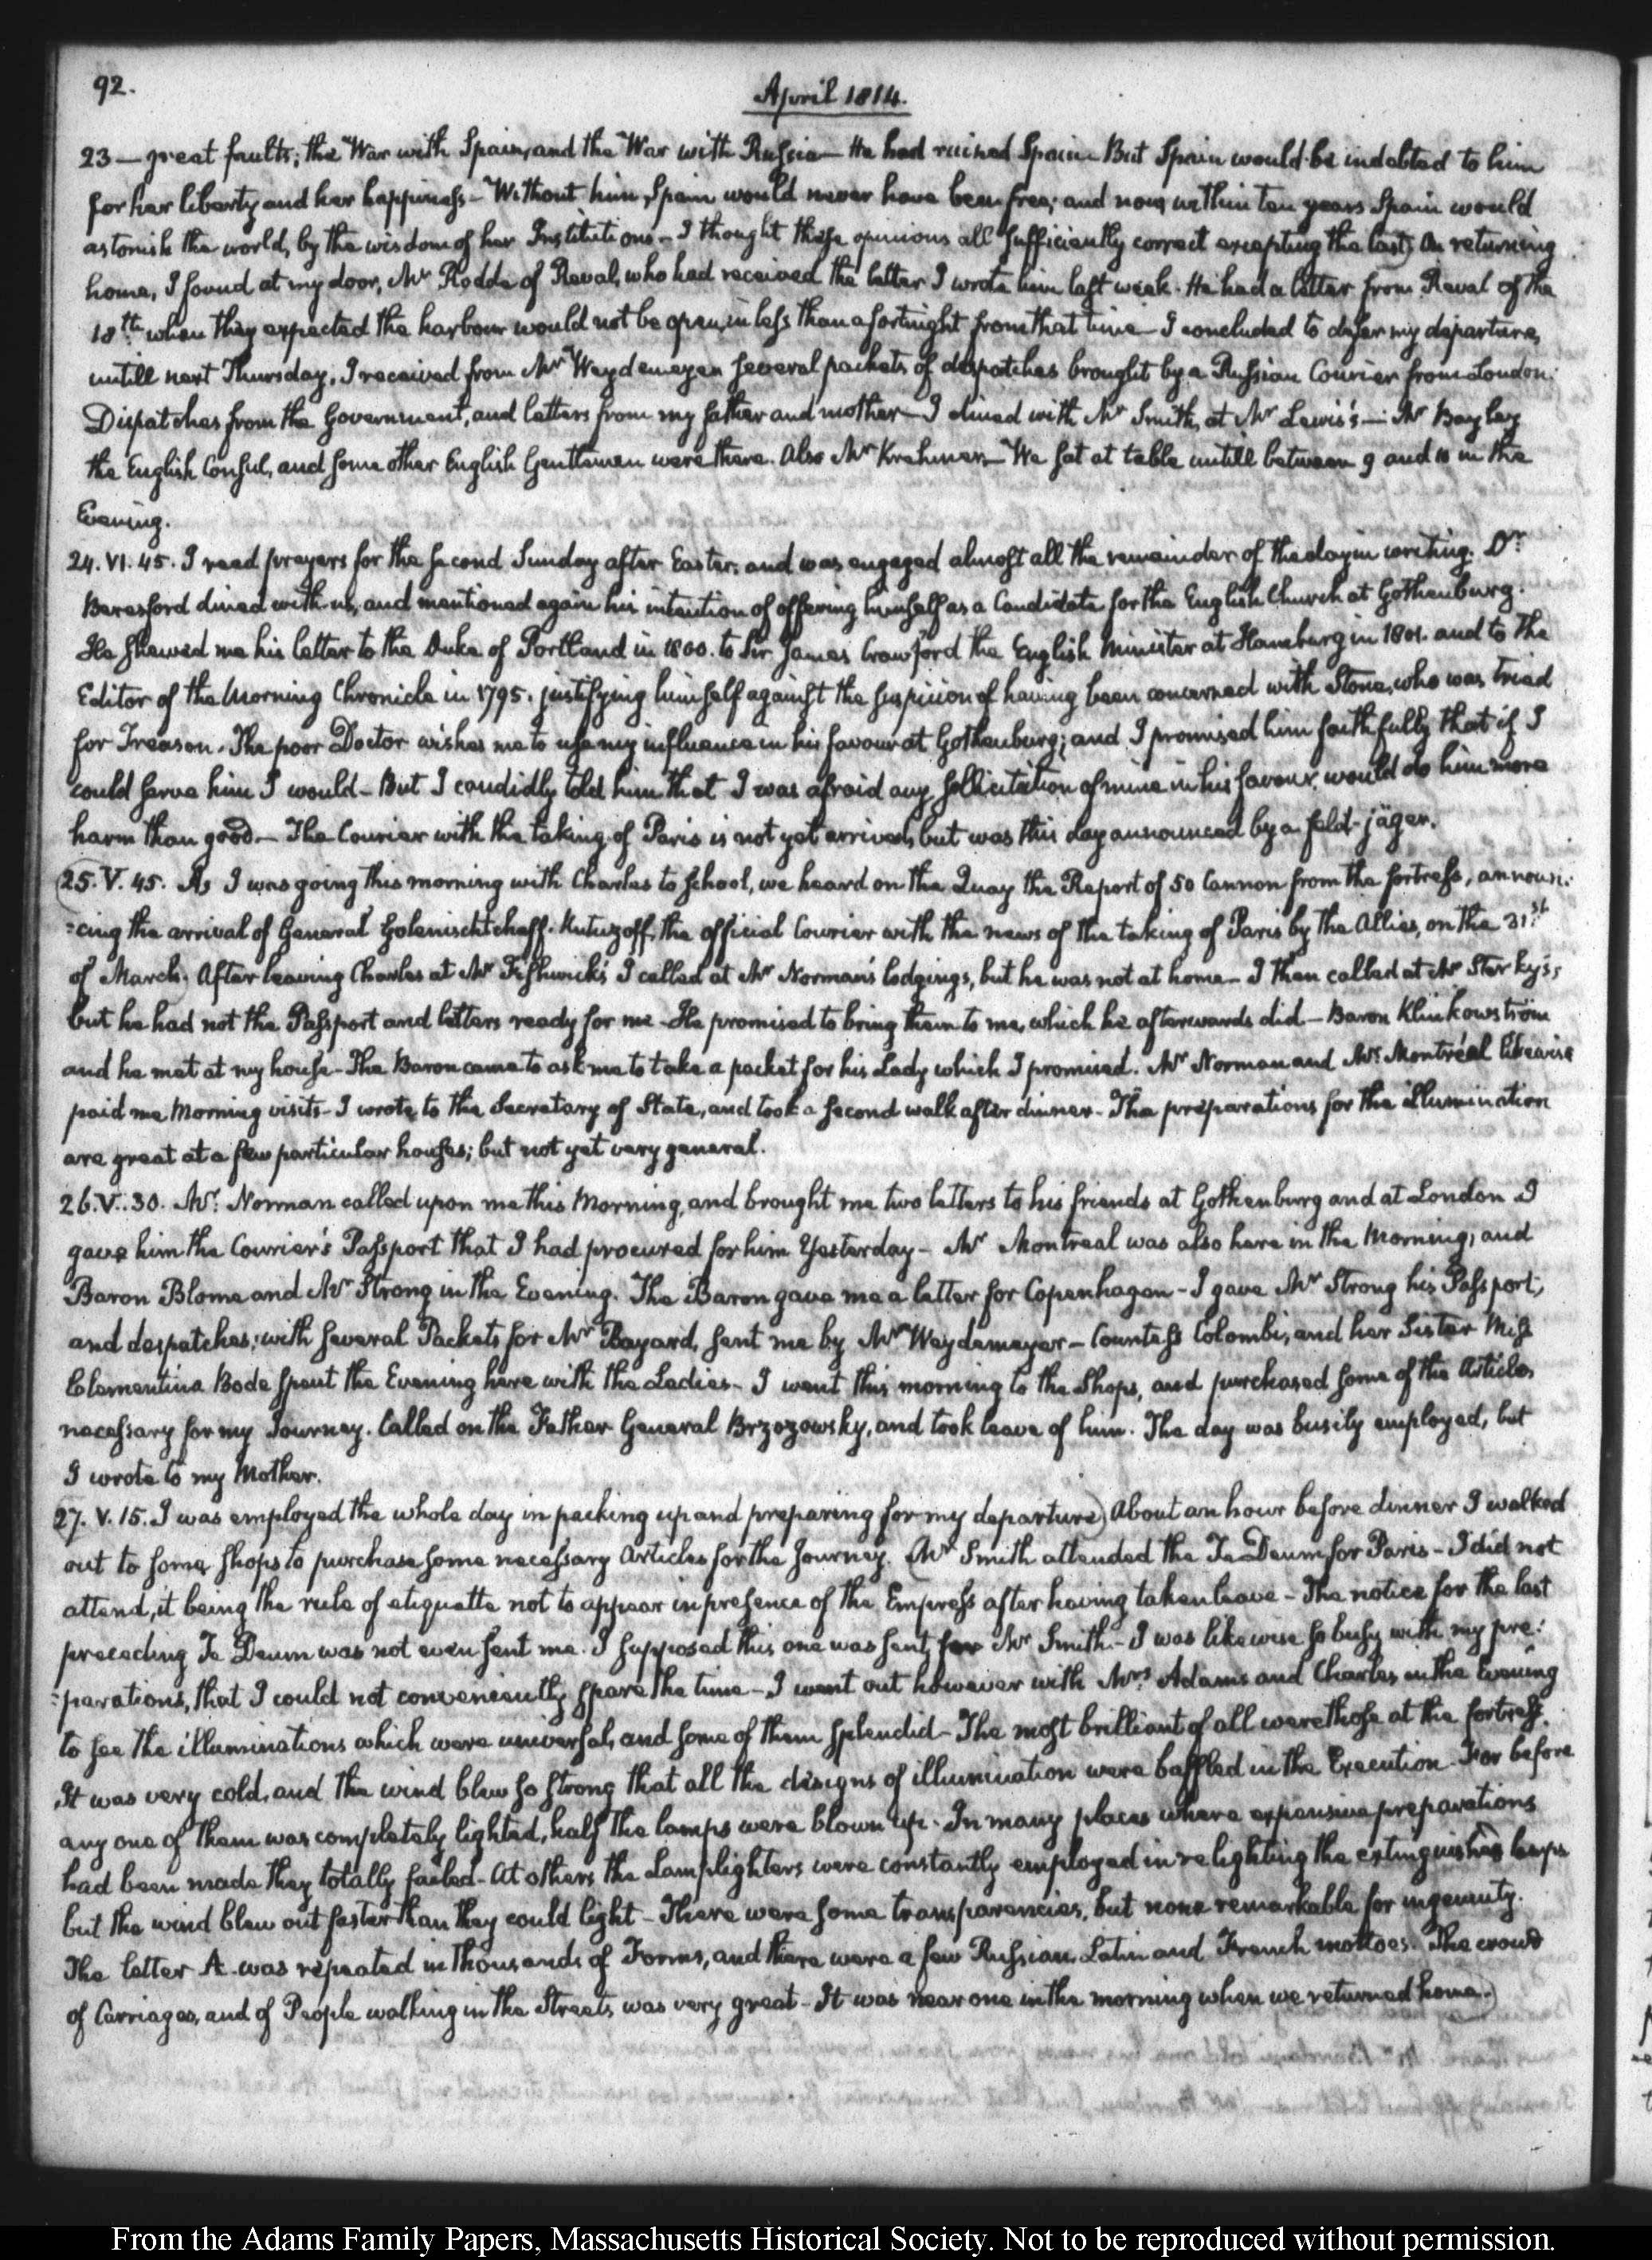 92.
April 1814.
23 — great faults; the War with Spain, and the War with Russia — He had ruined Spain. But Spain would be indebted to him
for her liberty and her happiness — Without him, Spain would never have been free; and now within ten years Spain would
astonish the world, by the wisdom of her Institutions — I thought these opinions all sufficiently correct excepting the last) On returning
home, I found at my door, Mr Rodde of Reval, who had received the letter I wrote him last week. He had a letter from Reval of the
18th when they expected the harbour would not be open, in less than a fortnight from that time — I concluded to defer my departure,
untill next Thursday. I received from Mr Weydemeyer several packets of despatches brought by a Russian Courier from London.
Dispatches from the Government, and letters from my father and mother — I dined with Mr Smith, at Mr Lewis's — Mr Bayley
the English Consul, and some other English Gentlemen were there. Also Mr Krehmer — We sat at table untill between 9 and 10 in the
Evening.
24. VI. 45. I read prayers for the second Sunday after Easter. and was engaged almost all the remainder of the day in writing. Dr
Beresford dined with us, and mentioned again his intention of offering himself as a Candidate for the English Church at Gothenburg.
He shewed me his letter to the Duke of Portland in 1800. to Sir James Crawford the English Minister at Hamburg in 1801. and to the
Editor of the Morning Chronicle in 1795. justifying himself against the suspicion of having been concerned with Stone, who was tried
for Treason. The poor Doctor wishes me to use my influence in his favour at Gothenburg; and I promised him faithfully that if I
could serve him I would — But I candidly told him that I was afraid any sollicitation of mine in his favour, would do him more
harm than good. — The Courier with the taking of Paris is not yet arrived, but was this day announced by a feld-jäger.
(25. V. 45. As I was going this morning with Charles to school, we heard on the Quay the Report of 50 Cannon from the fortress, announ:
:cing the arrival of General Golenischtcheff-Kutuzoff, the official Courier with the news of the taking of Paris by the Allies, on the 31st
of March) After leaving Charles at Mr Fishwick's I called at Mr Norman's lodgings, but he was not at home — I then called at Mr Sterky's,
but he had not the Passport and letters ready for me — He promised to bring them to me, which he afterwards did — Baron Klinkowström
and he met at my house — The Baron came to ask me to take a packet for his Lady which I promised. Mr Norman and Mr Montréal likewise
paid me Morning visits — I wrote to the Secretary of State, and took a second walk after dinner — The preparations for the illumination
are great at a few particular houses; but not yet very general.
26. V. 30. Mr Norman called upon me this Morning, and brought me two letters to his friends at Gothenburg and at London I
gave him the Courier's Passport that I had procured for him Yesterday — Mr Montreal was also here in the Morning, and
Baron Blome and Mr Strong in the Evening. The Baron gave me a letter for Copenhagen — I gave Mr Strong his Passport,
and despatches; with several Packets for Mr Bayard, sent me by Mr Weydemeyer — Countess Colombi, and her Sister Miss
Clementina Bode spent the Evening here with the Ladies — I went this morning to the Shops, and purchased some of the Articles
necessary for my Journey. Called on the Father General Brzozowsky, and took leave of him. The day was busily employed, but
I wrote to my Mother.
27. V. 15. I was employed the whole day in packing up and preparing for my departure) About an hour before dinner I walked
out to some shops to purchase some necessary Articles for the Journey. (Mr Smith attended the Te Deum for Paris — I did not
attend, it being the rule of etiquette not to appear in presence of the Empress after having taken leave — The notice for the last
preceding Te Deum was not even sent me. I supposed this one was sent for Mr Smith — I was likewise so busy with my pre:
:parations, that I could not conveniently spare the time — I went out however with Mrs Adams and Charles in the Evening
to see the illuminations which were universal, and some of them splendid — The most brilliant of all were those at the fortress.
It was very cold, and the wind blew so strong that all the designs of illumination were baffled in the Execution. For before
any one of them was completely lighted, half the lamps were blown up. In many places where expensive preparations
had been made they totally failed — At others the Lamplighters were constantly employed in relighting the extinguished lamps
but the wind blew out faster than they could light — There were some transparencies, but none remarkable for ingenuity.
The letter A. was repeated in thousands of Forms, and there were a few Russian, Latin and French mottoes. The crowd
of Carriages, and of People walking in the Streets, was very great — It was near one in the morning when we returned home.)
From the Adams Family Papers, Massachusetts Historical Society. Not to be reproduced without permission.